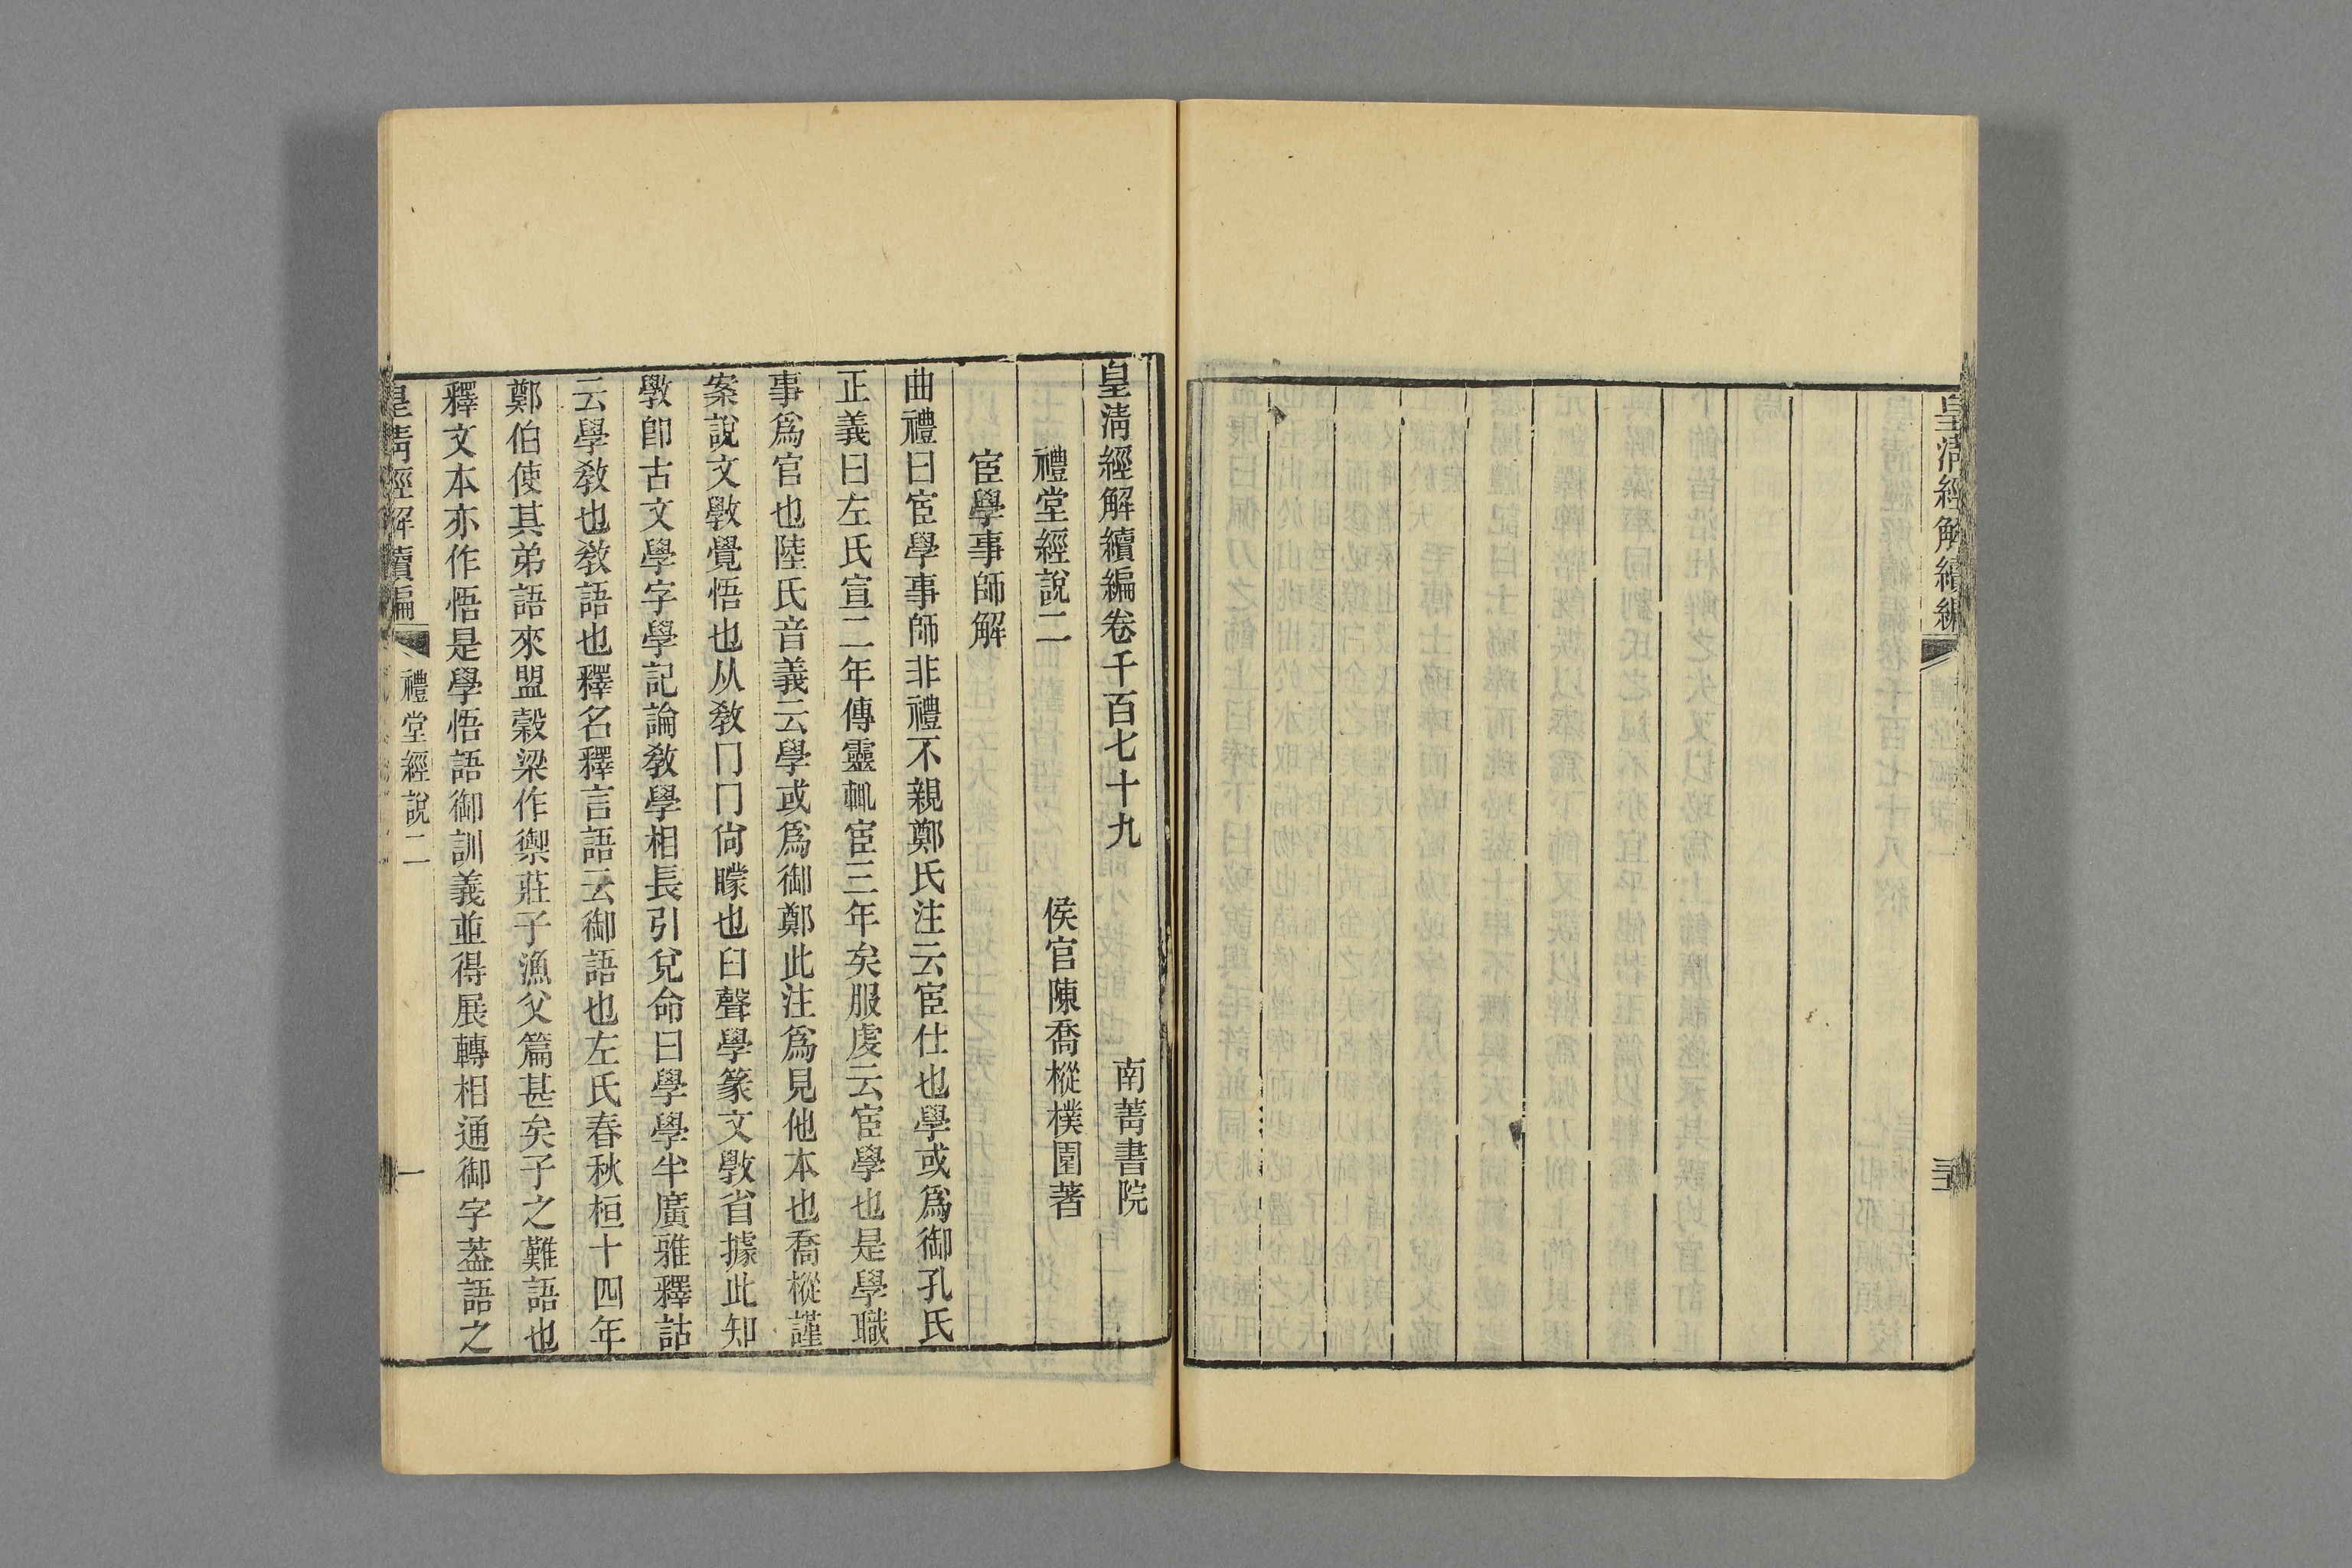 皇清經解續編
皇清經解續編卷千百七十九
南菁書院
禮堂經說二
侯官陳喬樅樸園著
宦學事師解
曲禮曰宦學事師非禮不親鄭氏注云宦仕也學或爲御孔氏
正義曰左氏宣二年傳靈輒宦三年矣服虔云宦學也是學職
事爲官也陸氏音義云學或爲御鄭此注爲見他本也喬樅謹
案說文斆覺悟也从敎冂冂尙矇也臼聲學篆文斆省據此知
斆卽古文學字學記論敎學相長引兌命曰學學半廣雅釋詁
云學敎也敎語也釋名釋言語云御語也左氏春秋桓十四年
鄭伯使其弟語來盟穀梁作禦莊子漁父篇甚矣子之難語也
釋文本亦作悟是學悟語御訓義並得展轉相通御字葢語之
皇清經解續編
禮堂經說二
一